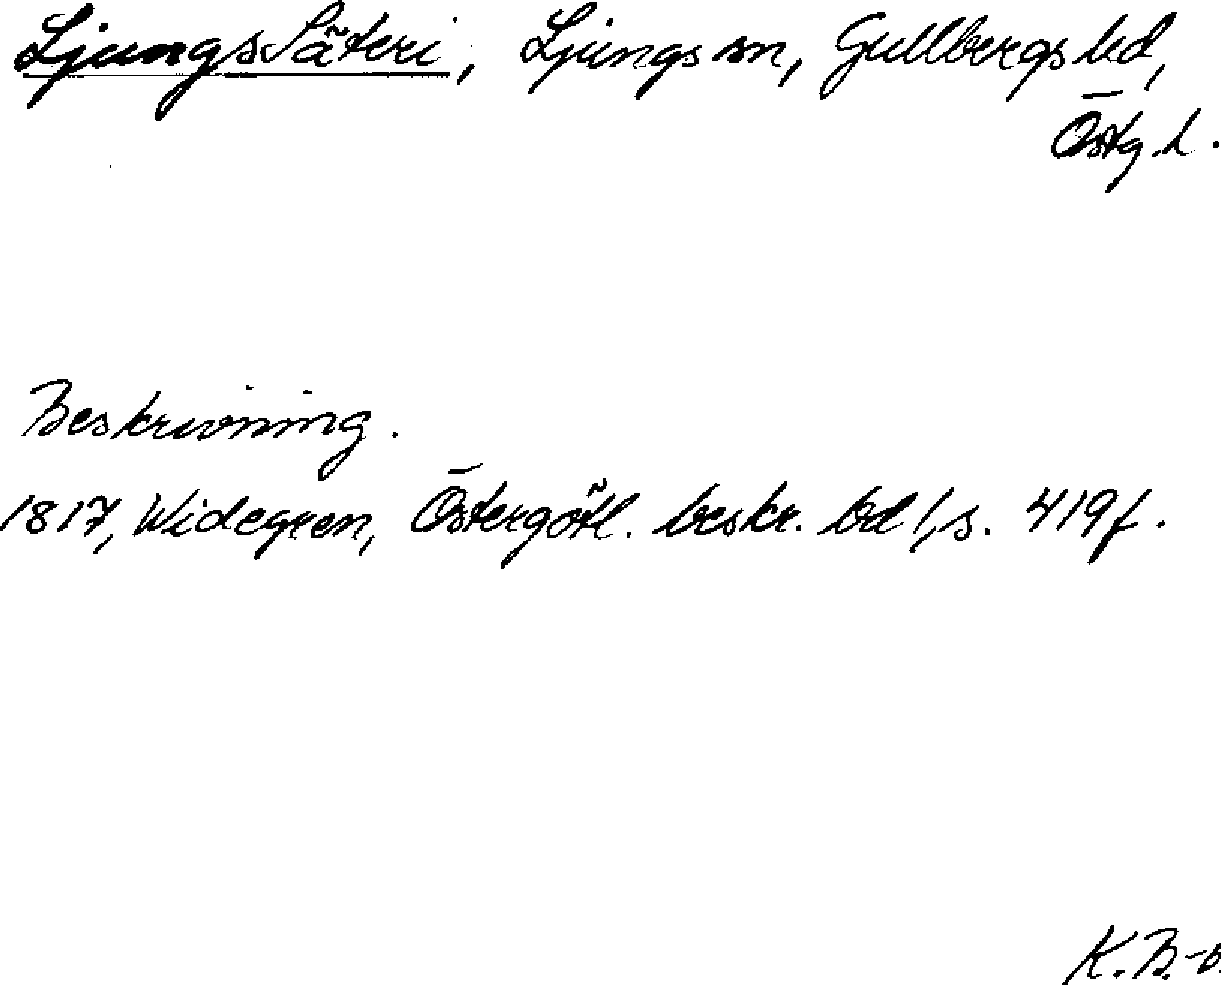 Ljungs Säteri, Ljungs sn, Gullbergs hd,
Östg. l.
Beskrivning.
1817, Widegren, Östergötl. beskr. bd 1, s. 419 f.
K. B-n.